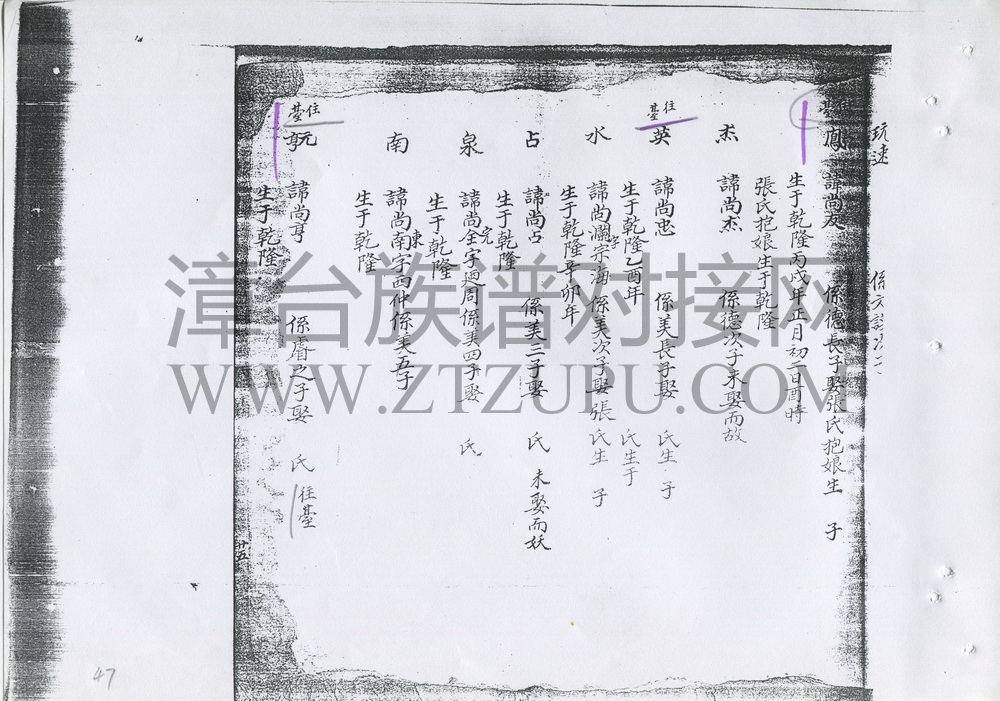 玩速
鳳 諱尚友 係德長子娶張氏抱娘生 子
生于乾隆丙戌年正月初二日酉時
張氏抱娘生于乾隆
杰 諱尚杰 係德次子未娶而故
往臺
英 諱尚忠 係美長子娶 氏生 子
生于乾隆乙酉年 氏生于
水 諱尚瀾字宗海 係美次子娶張氏生 子
生于乾隆辛卯年
占 諱尚占 係美三子娶 氏 未娶而妖
生于乾隆
泉 諱尚全字廻周係美四子娶 氏
完
生于乾隆
南 諱尚南字西仲係美五子
東
生于乾隆
往臺
元亨 諱尚亨 係睿之子娶 氏 往臺
生于乾隆
廿五
47
漳台族谱对接网
WWW.ZTZUPU.COM